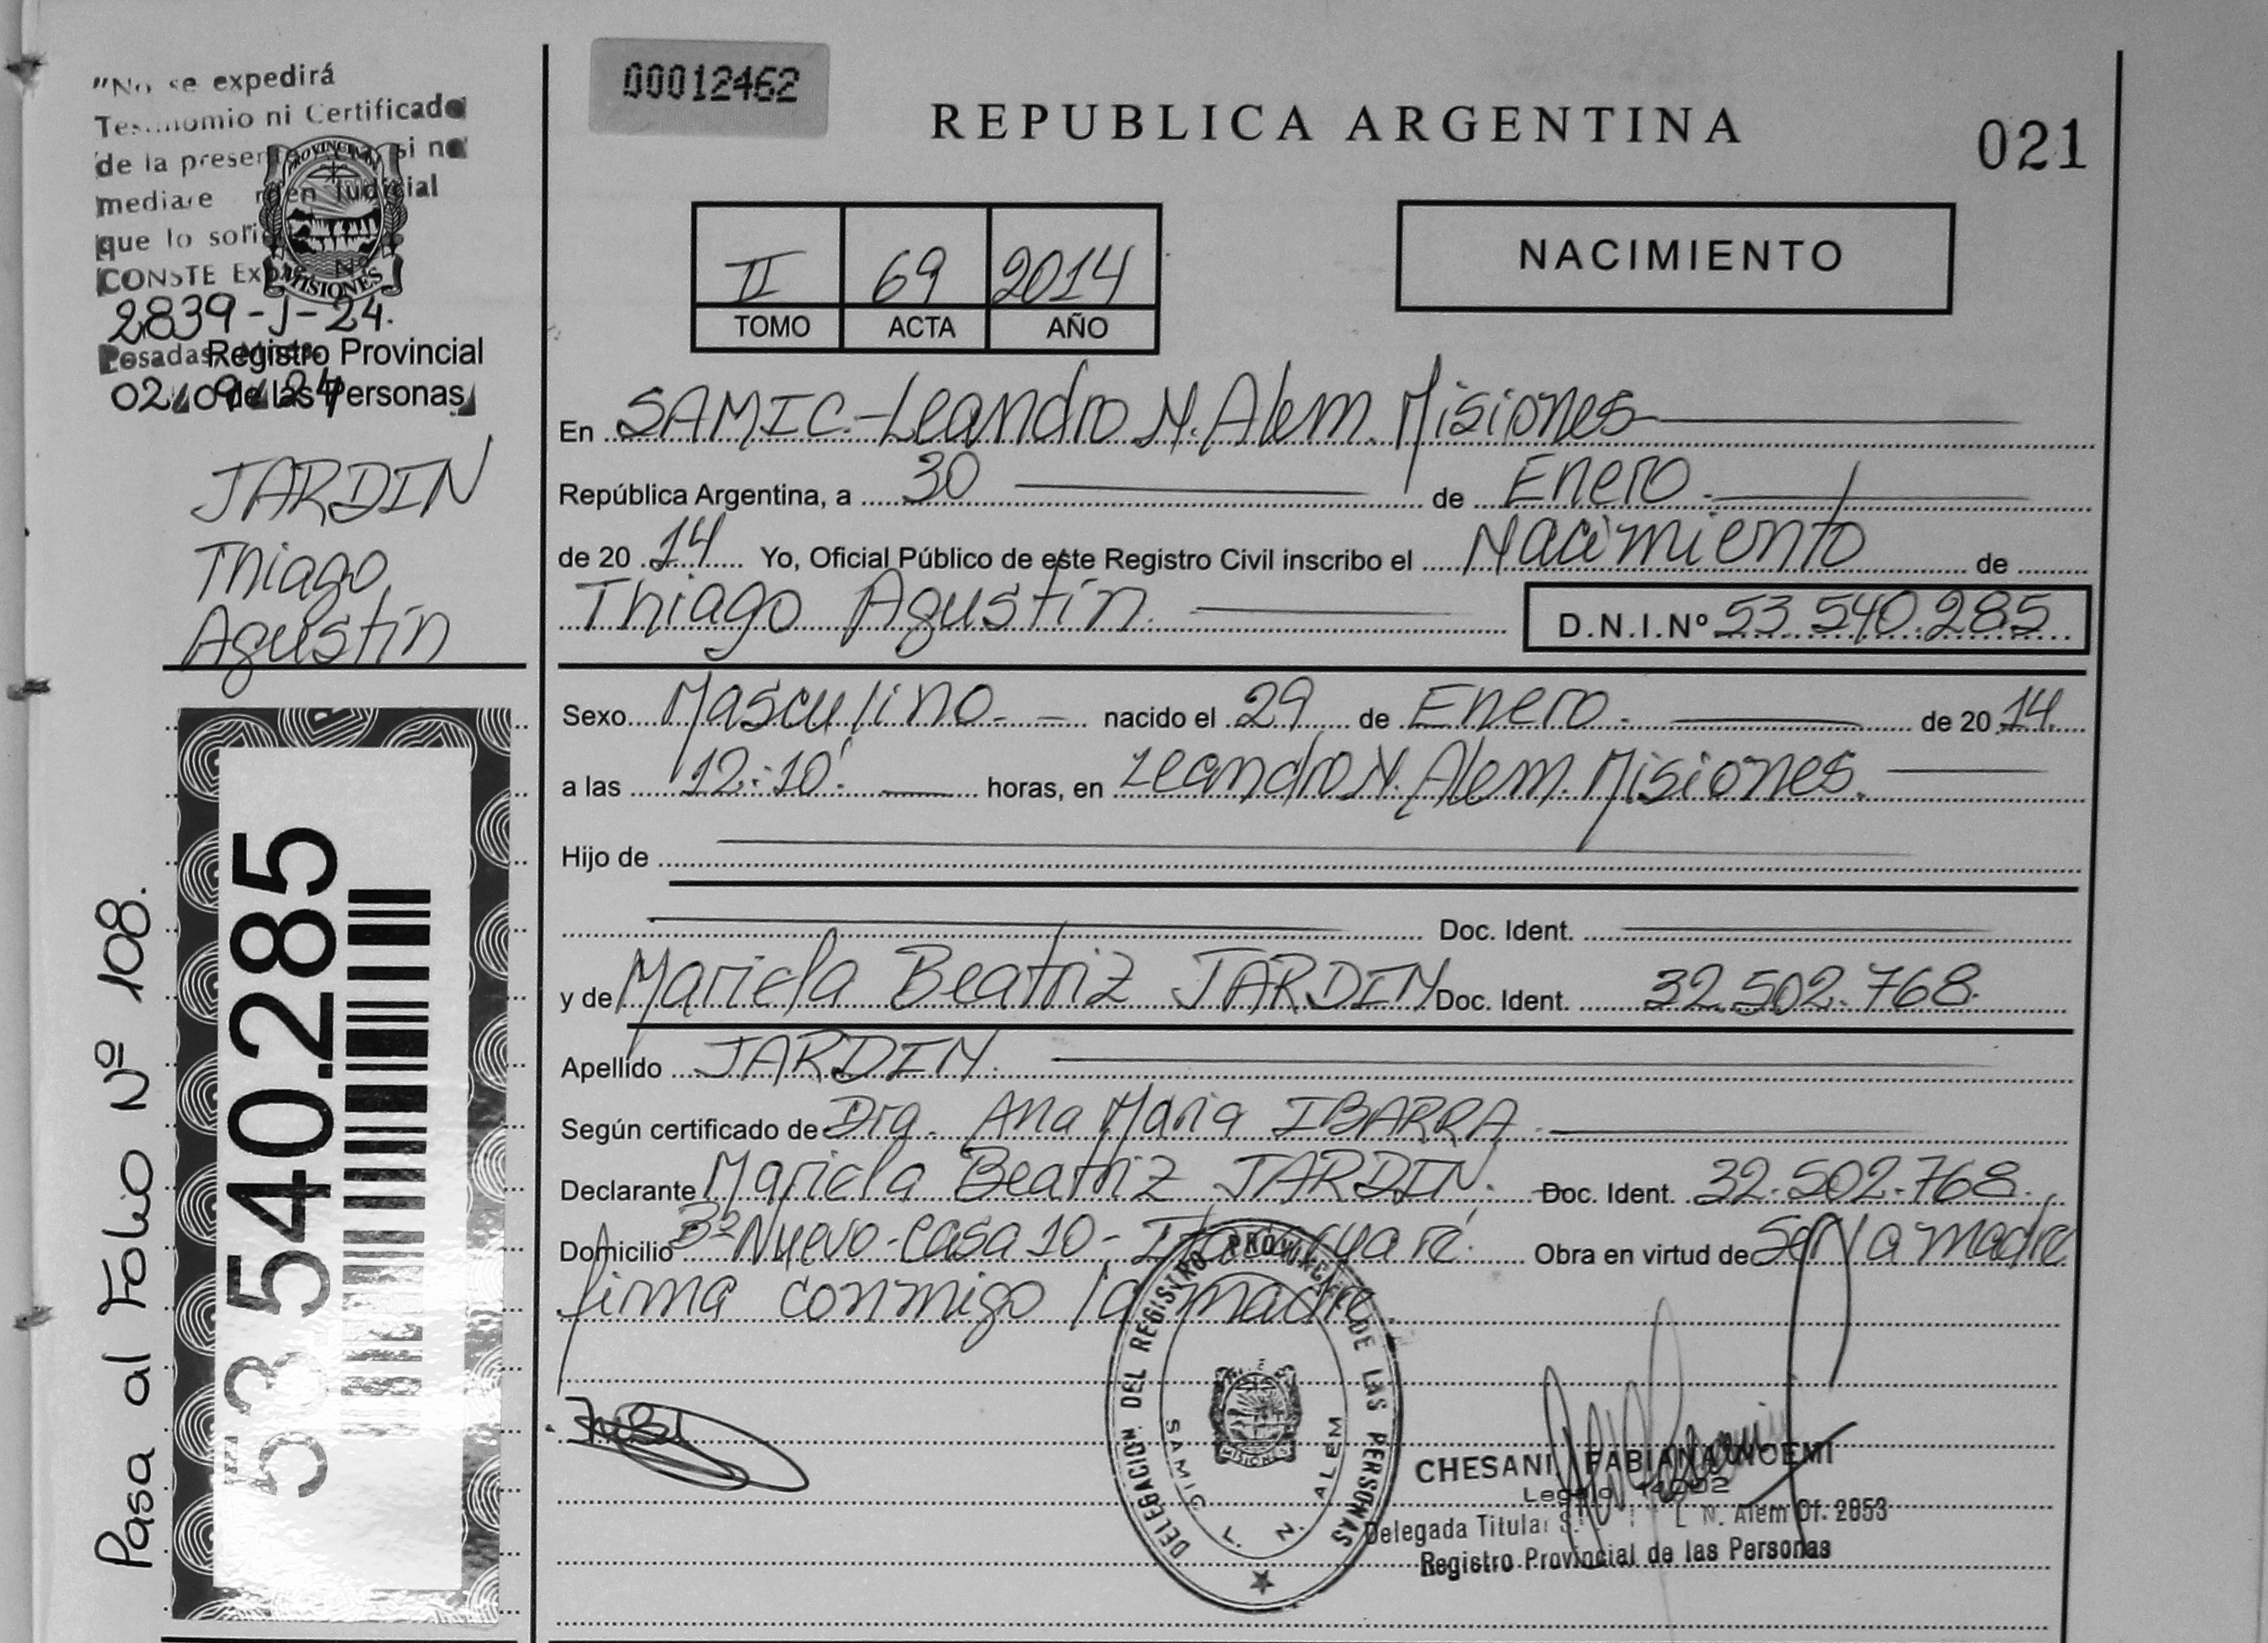 "No se expedirá
Testimomio ni Certificado
de la presen si no
mediare rden Judicial
que lo soli
CONSTE Exp Nº
2839-J-24.
Posadas, Mnes.
02/09/24
PROVINCIA MISIONES
Registro Provincial
de las Personas
JARDIN
Thiago
Agustín
53.540.285
Pasa al Folio Nº 108.
00012462
REPUBLICA ARGENTINA
021
II 69 2014
TOMO ACTA AÑO
NACIMIENTO
En SAMIC.-Leandro N. Alem. Misiones
República Argentina, a 30 de Enero.
de 20 14 Yo, Oficial Público de este Registro Civil inscribo el Nacimiento de
Thiago Agustín. D.N.I.Nº 53.540.285
Sexo Masculino. nacido el 29 de Enero. de 20 14.
a las 12:10' horas, en Leandro N. Alem. Misiones.
Hijo de
Doc. Ident.
y de Mariela Beatriz JARDIN Doc. Ident. 32.502.768.
Apellido JARDIN.
Según certificado de Dra. Ana Maria IBARRA.
Declarante Mariela Beatriz JARDIN. Doc. Ident. 32.502.768.
Domicilio Bº Nuevo-Casa 10- Obra en virtud de Ser la madre
firma conmigo la madre
DELEGACION DEL REGISTRO PROVINCIAL DE LAS PERSONAS
SAMIC L. N. ALEM
MISIONES
CHESANI, FABIANA NOEMI
Legajo 14002
Delegada Titular L N. Alem Of. 2853
Registro Provincial de las Personas